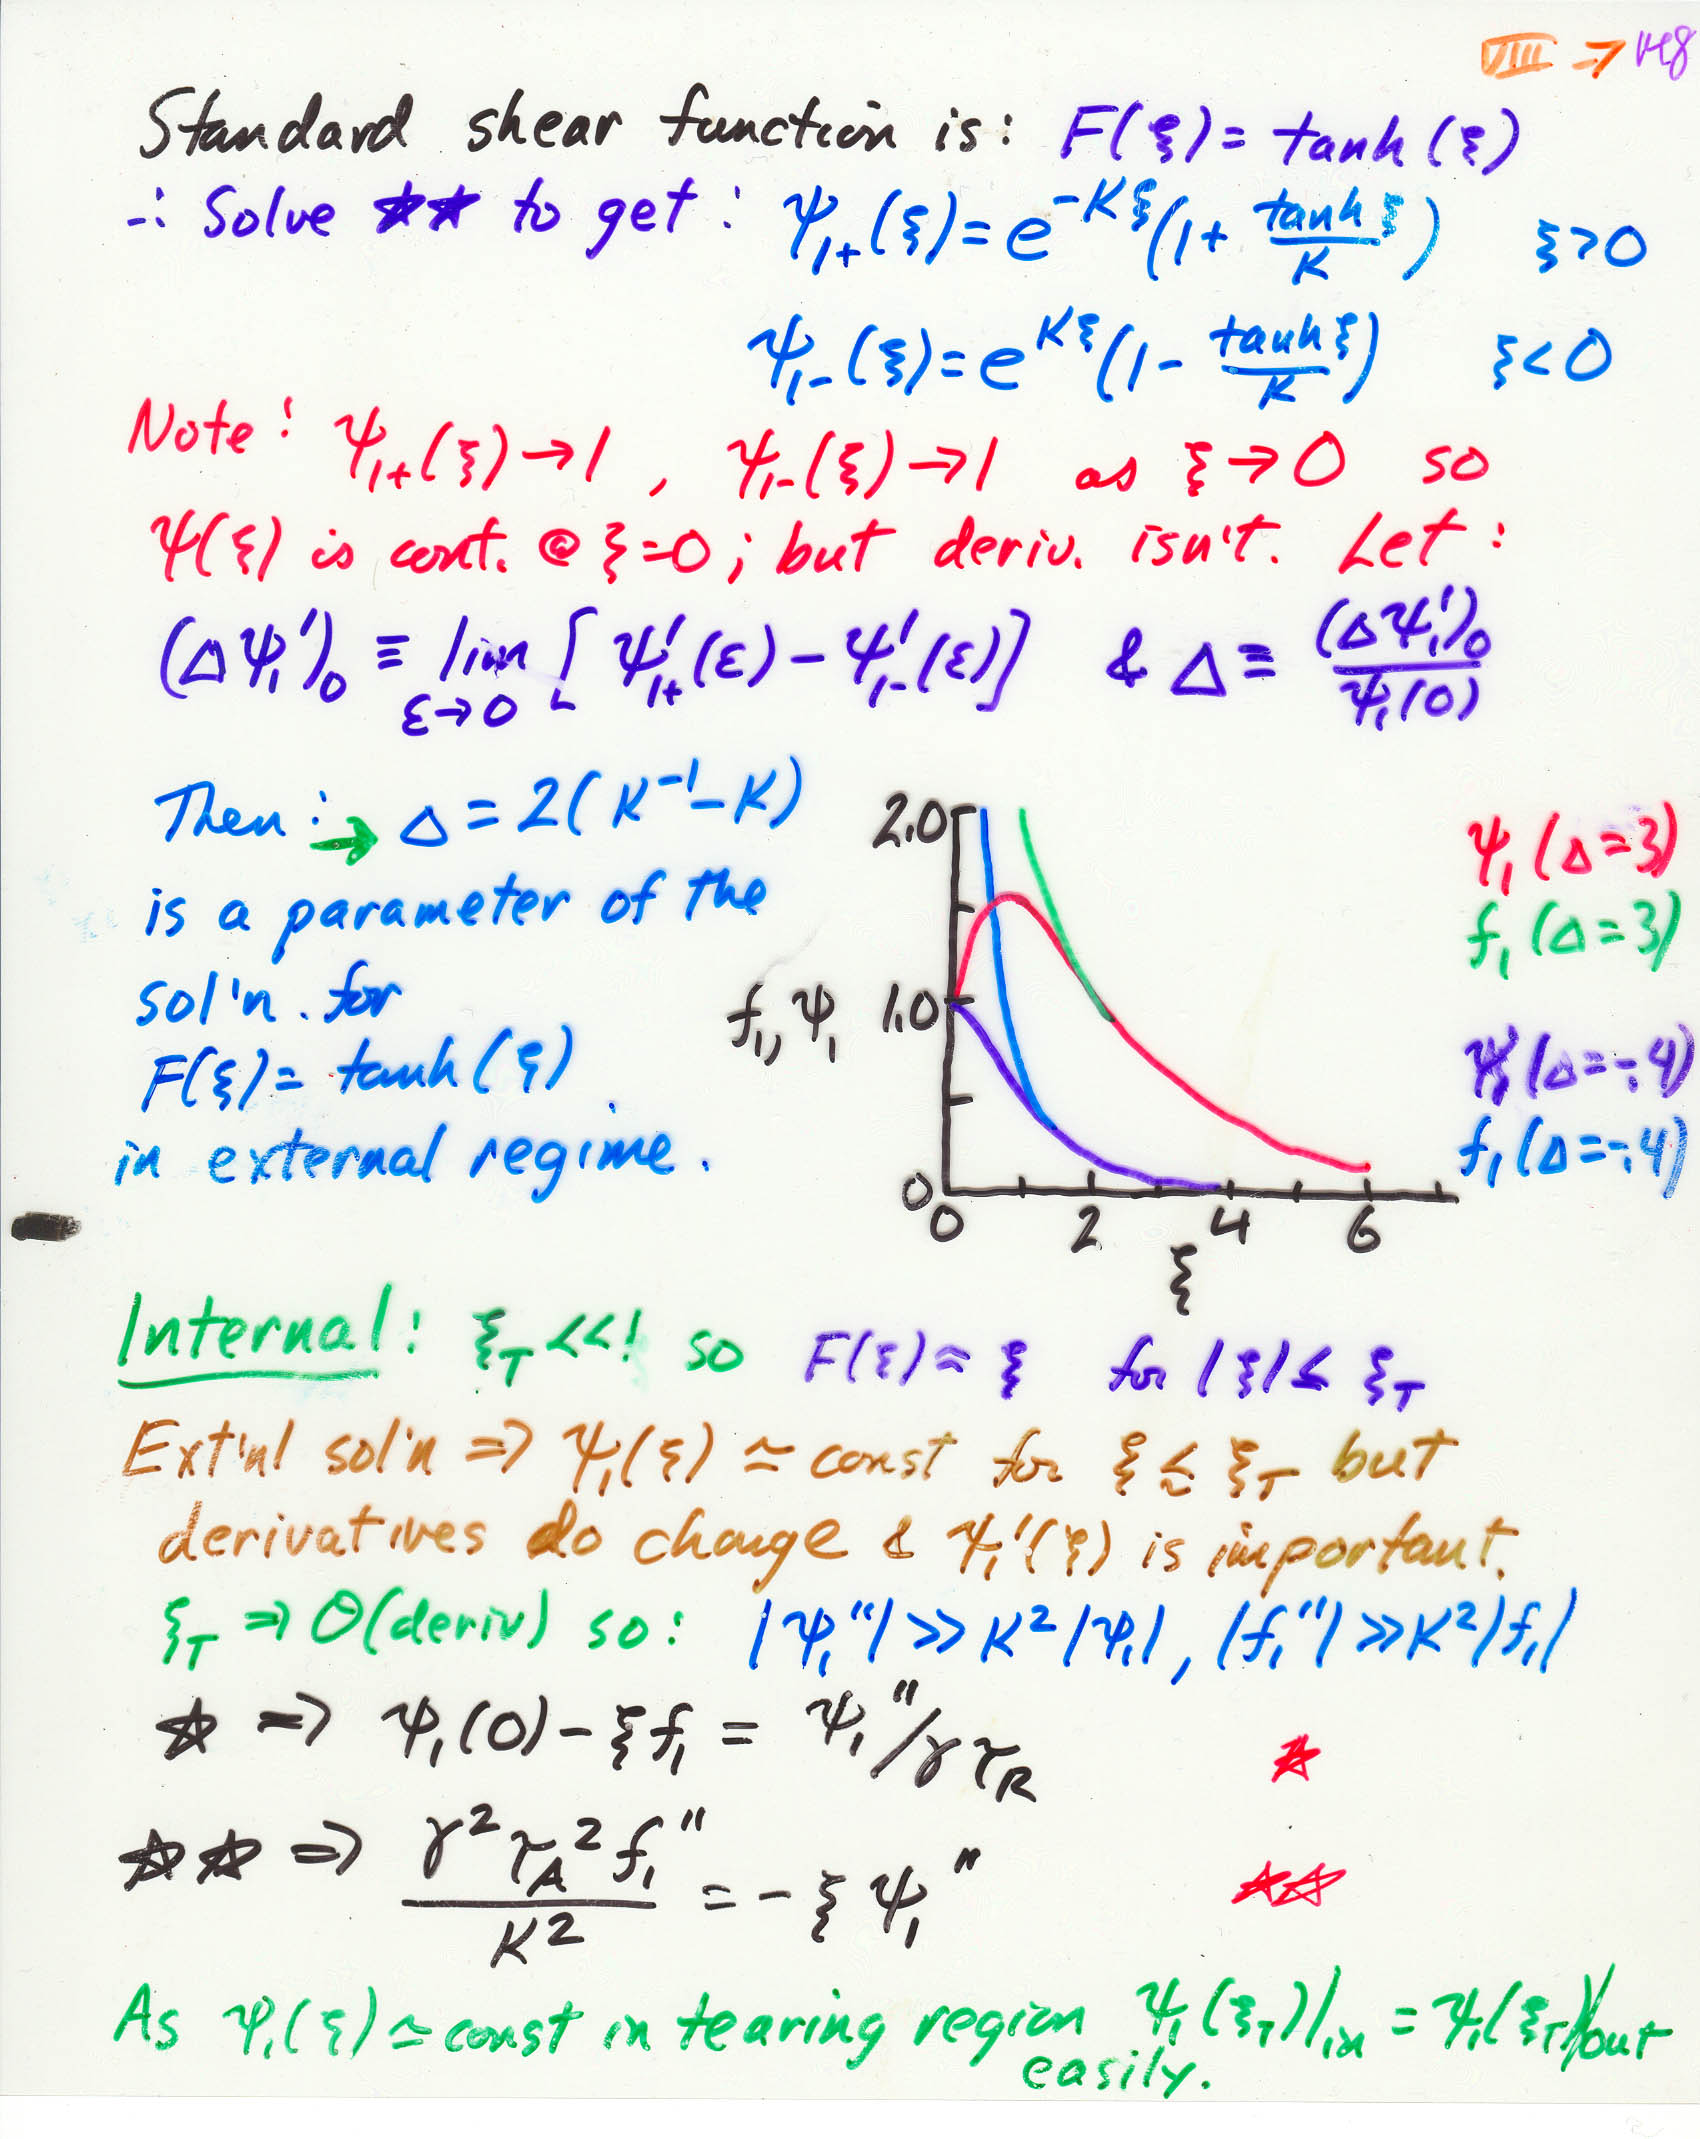 VIII ⇒ H8
Standard shear function is: F(ξ) = tanh(ξ)
∴ Solve ★★ to get: ψ₁₊(ξ) = e^{-Kξ}(1 + tanh ξ / K) ξ > 0
ψ₁₋(ξ) = e^{Kξ}(1 - tanh ξ / K) ξ < 0
Note: ψ₁₊(ξ) → 1, ψ₁₋(ξ) → 1 as ξ → 0 so
ψ(ξ) is cont. @ ξ = 0; but deriv. isn't. Let:
(Δψ₁')₀ ≡ lim_{ε→0} [ψ₁₊'(ε) - ψ₁₋'(ε)] & Δ ≡ (Δψ₁')₀ / ψ₁(0)
Then: → Δ = 2(K⁻¹ - K)
is a parameter of the
sol'n. for
F(ξ) = tanh(ξ)
in external regime.
2.0
f₁, ψ₁ 1.0
0
0 2 4 6
ξ
ψ₁ (Δ=3)
f₁ (Δ=3)
ψ₁ (Δ=-.4)
f₁ (Δ=-.4)
Internal: ξ_T <<! so F(ξ) ≈ ξ for |ξ| ≤ ξ_T
Ext'nl sol'n ⇒ ψ₁(ξ) ≃ const for ξ ≲ ξ_T but
derivatives do change & ψ₁'(ξ) is important.
ξ_T ⇒ O(deriv) so: |ψ₁''| >> K²|ψ₁|, |f₁''| >> K²|f₁|
☆ ⇒ ψ₁(0) - ξf₁ = ψ₁''/γτ_R ☆
☆☆ ⇒ γ²τ_A²f₁'' / K² = -ξψ₁'' ☆☆
As ψ₁(ξ) ≃ const in tearing region ψ₁(ξ_T)|in = ψ₁(ξ_T)|out
easily.